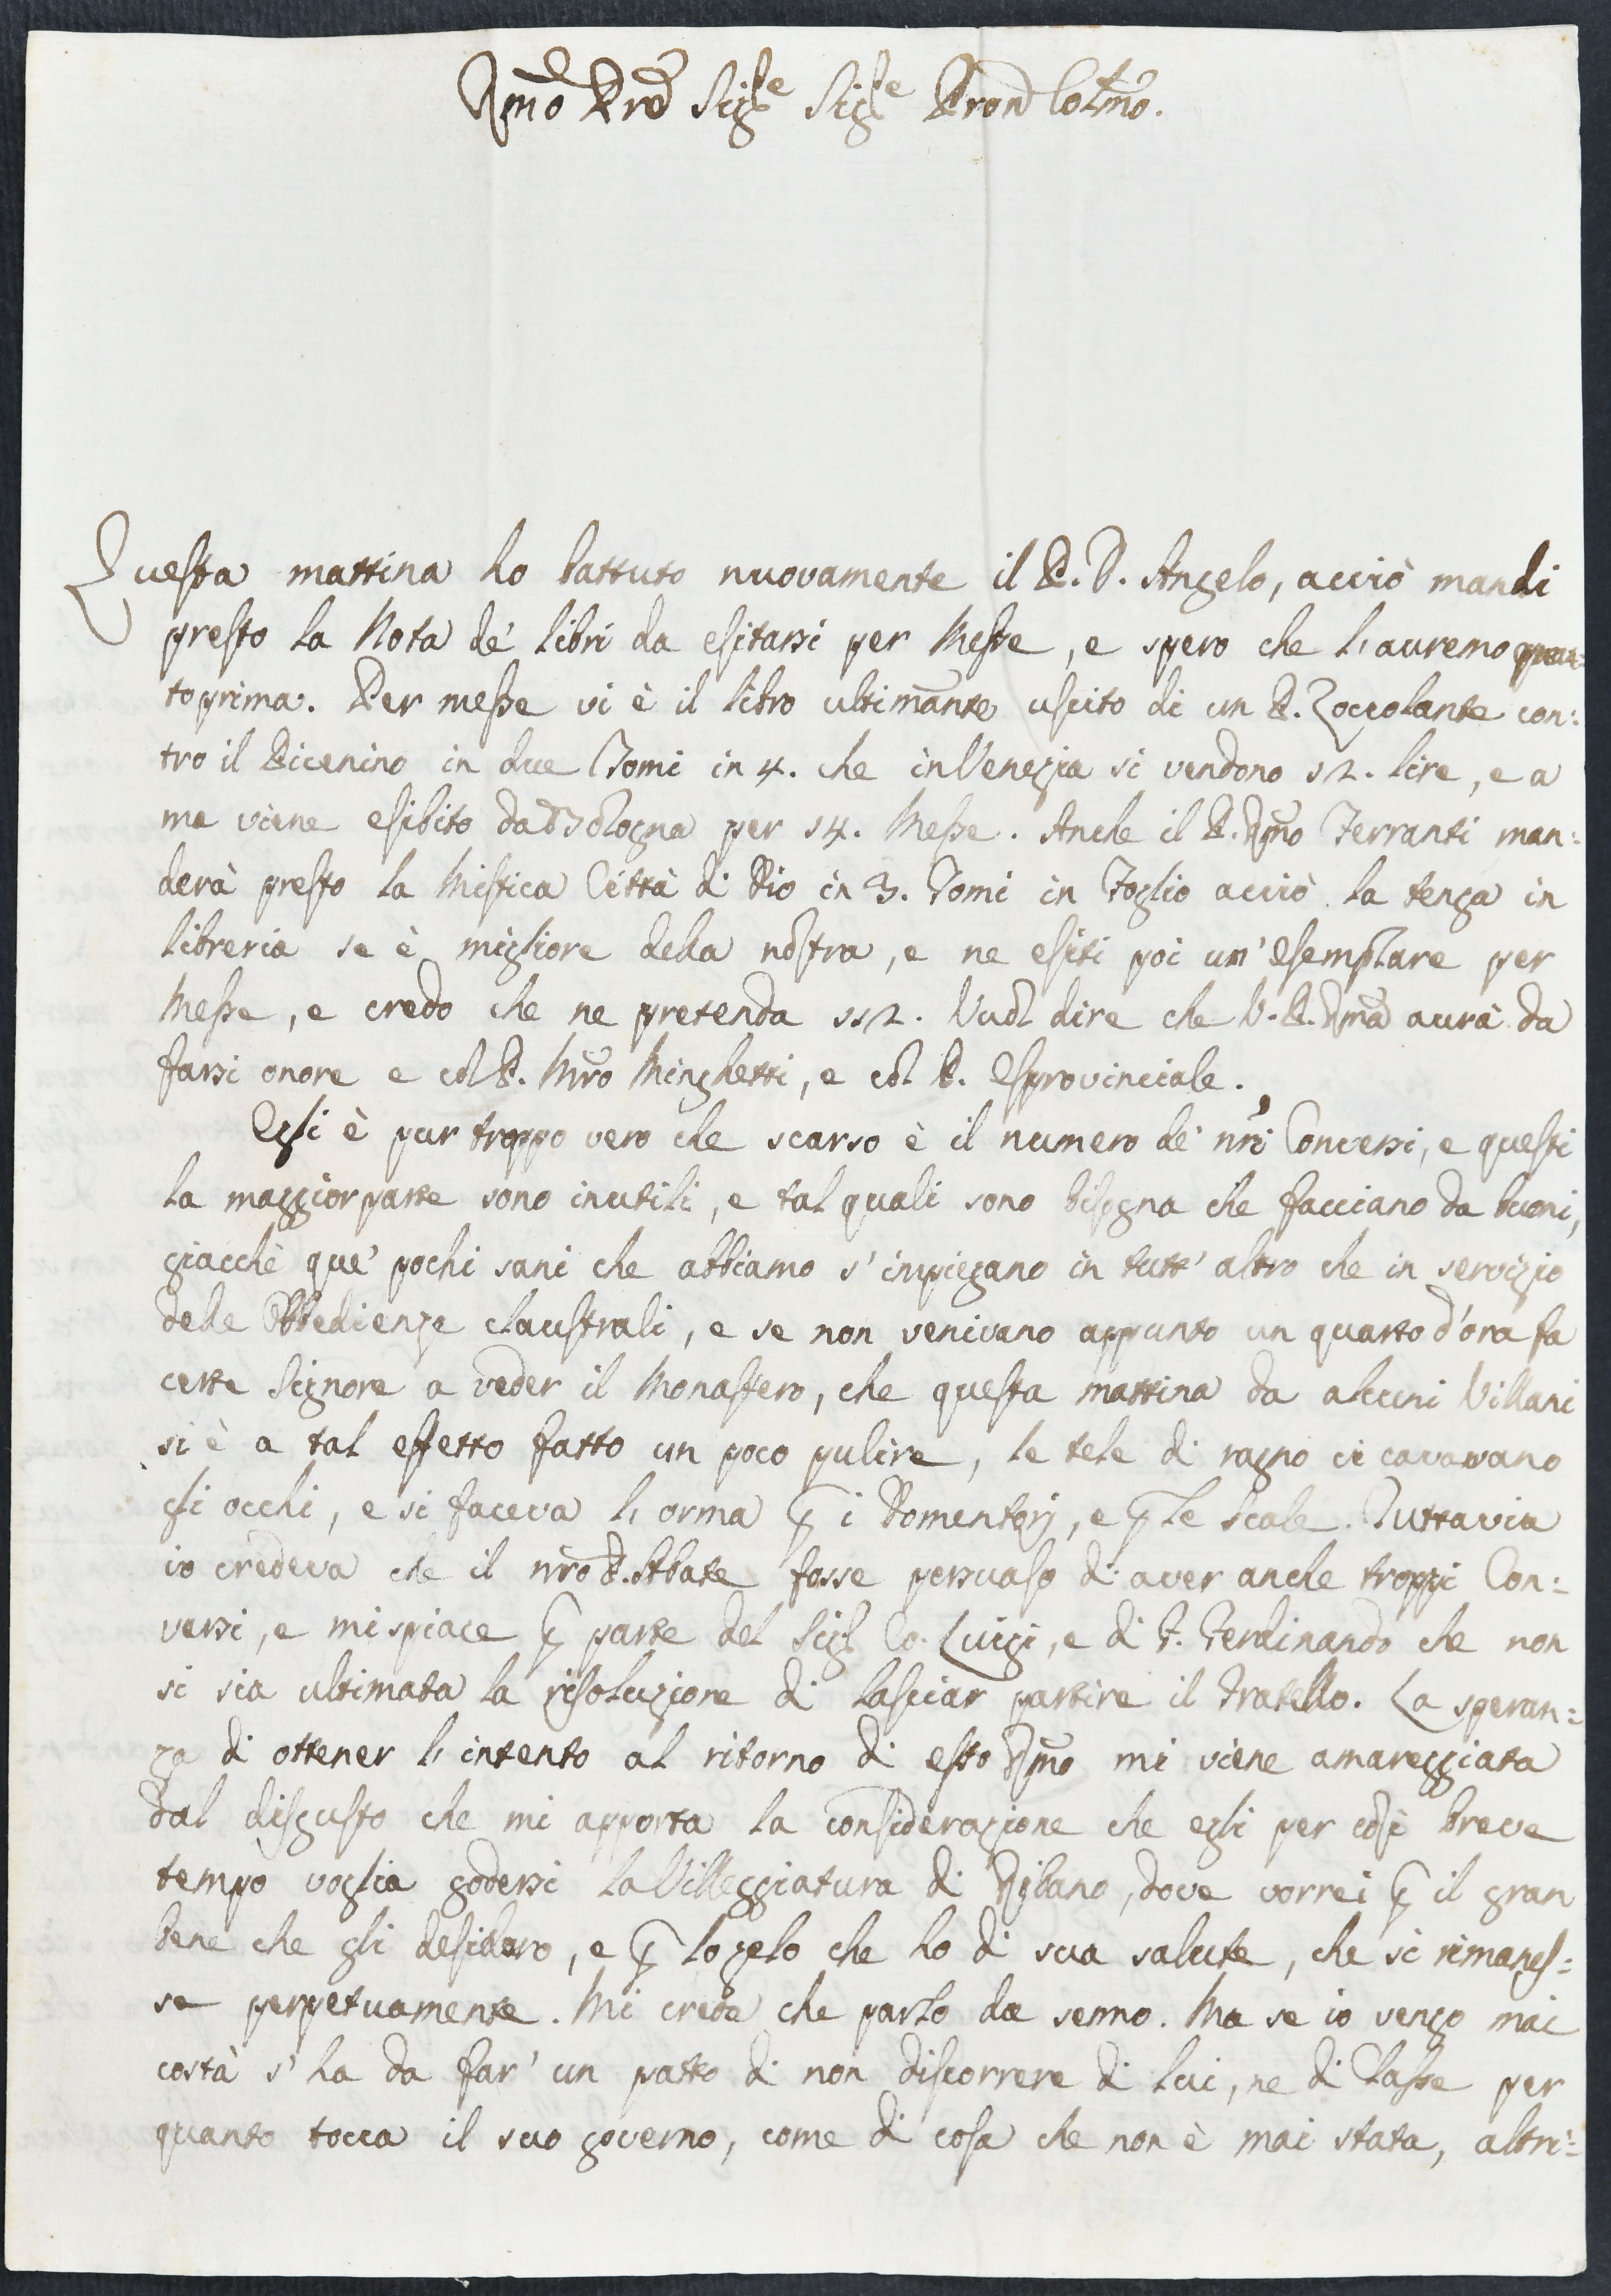 Rmo Pre Sigre Sigre Pron Colmo.
Questa mattina ho battuto nuovamente il P. D. Angelo, acciò mandi
presto la Nota de' libri da esitarsi per Messe, e spero che l'auremo quan=
to prima. Per messe vi è il libro ultimante uscito di un P. Zoccolante con:
tro il Dicenino in due Tomi in 4. che in Venezia si vendono 12. lire, e a
me viene esibito da Bologna per 14. Messe. Anche il P. Rmo Ferranti man:
derà presto la Mistica Città di Dio in 3. Tomi in Foglio acciò la tenga in
libreria se è migliore della nostra, e ne esiti poi un' Esemplare per
Messe, e credo che ne pretenda 112. Vuol dire che V. P. Rma aurà da
farsi onore e col P. Mro Minghetti, e col P. Esprovinciale.
Egli è pur troppo vero che scarso è il numero de' nri Conversi, e questi
la maggior parte sono inutili, e tal quali sono bisogna che facciano da buoni,
giacchè que' pochi sani che abbiamo s' impiegano in tutt' altro che in servizio
delle Obbedienze claustrali, e se non venivano appunto un quarto d'ora fa
certe Signore a veder il Monastero, che questa mattina da alcuni Villani
si è a tal effetto fatto un poco pulire, le tele di ragno ci cavavano
gli occhi, e si faceva l' orma p i Dormentorj, e p le Scale. Tuttavia
io credeva che il nro P. Abate fosse persuaso di aver anche troppi Con:
versi, e mi spiace p parte del Sigr Co. Luigi, e di F. Ferdinando che non
si sia ultimata la risoluzione di lasciar partire il Fratello. La speran:
za di ottener l' intento al ritorno di esso Rmo mi viene amareggiata
dal disgusto che mi apporta la considerazione che egli per così breve
tempo voglia godersi la Villeggiatura di, dove vorrei p il gran
bene che gli desidero, e p lo zelo che ho di sua salute, che si rimanes=
se perpetuamente. Mi creda che parlo da senno. Ma se io vengo mai
costà s' ha da far' un patto di non discorrere di lui, ne di Classe per
quanto tocca il suo governo, come di cosa che non è mai stata, altri=